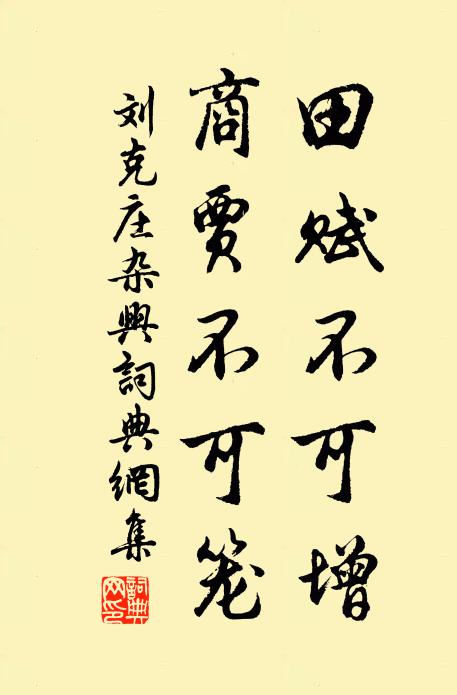 田赋不可增
商贾不可笼
刘克庄杂興詞典網集
詞典網印